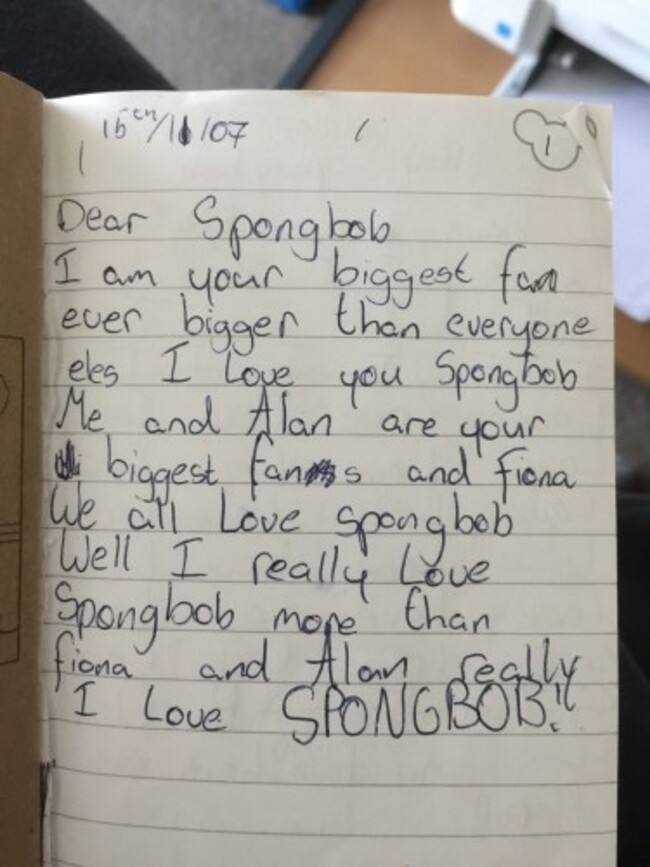 15th/11/07
1
Dear Spongbob
I am your biggest fan
ever bigger than everyone
eles I Love you Spongbob
Me and Alan are your
biggest fans and fiona
We all Love spongbob
Well I really Love
Spongbob more than
fiona and Alan really
I Love SPONGBOB!!